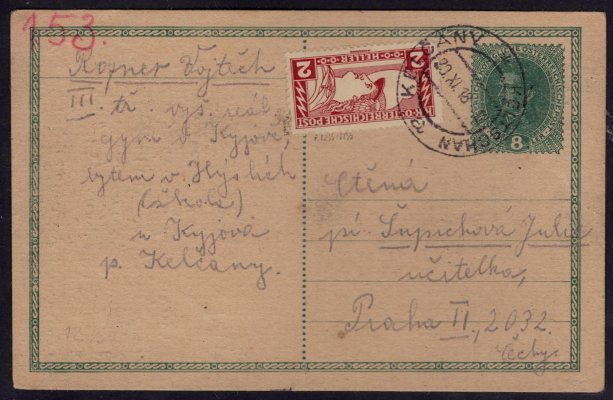 153.
Rozner Vojtěch
III. tř. vyš. reál.
gym. v Kyjově,
bytem v Hýslích
(škola)
u Kyjova
p. Kelčany.
2
HELLER
K.K. OESTERREICHISCHE POST
KELČANY
8
Ctěná
pí. Šupichová Julie
učitelka,
Praha II., 2032.
Čechy.